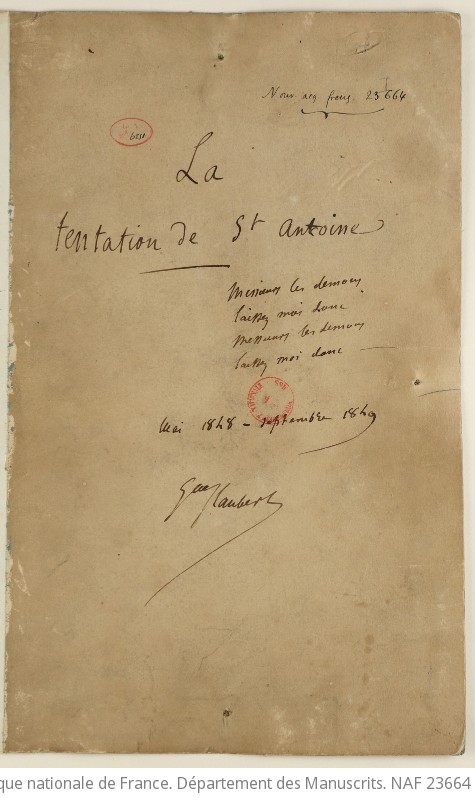 Nouv. acq. franç. 23664
La
tentation de St Antoine
Messieurs les demons
laissez moi donc
Messieurs les demons
laissez moi donc
Mai 1848 - Septembre 1849
Gve Flaubert
que nationale de France. Département des Manuscrits. NAF 23664